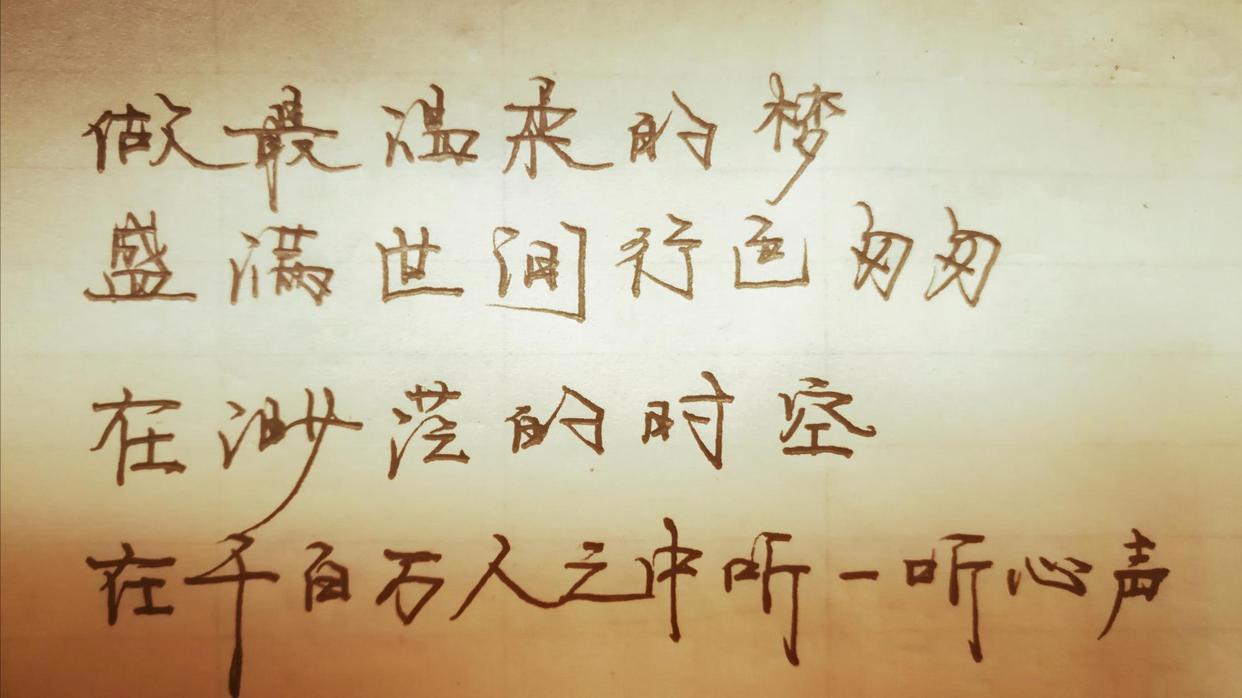 做最温柔的梦
盛满世间行色匆匆
在渺茫的时空
在千百万人之中听一听心声